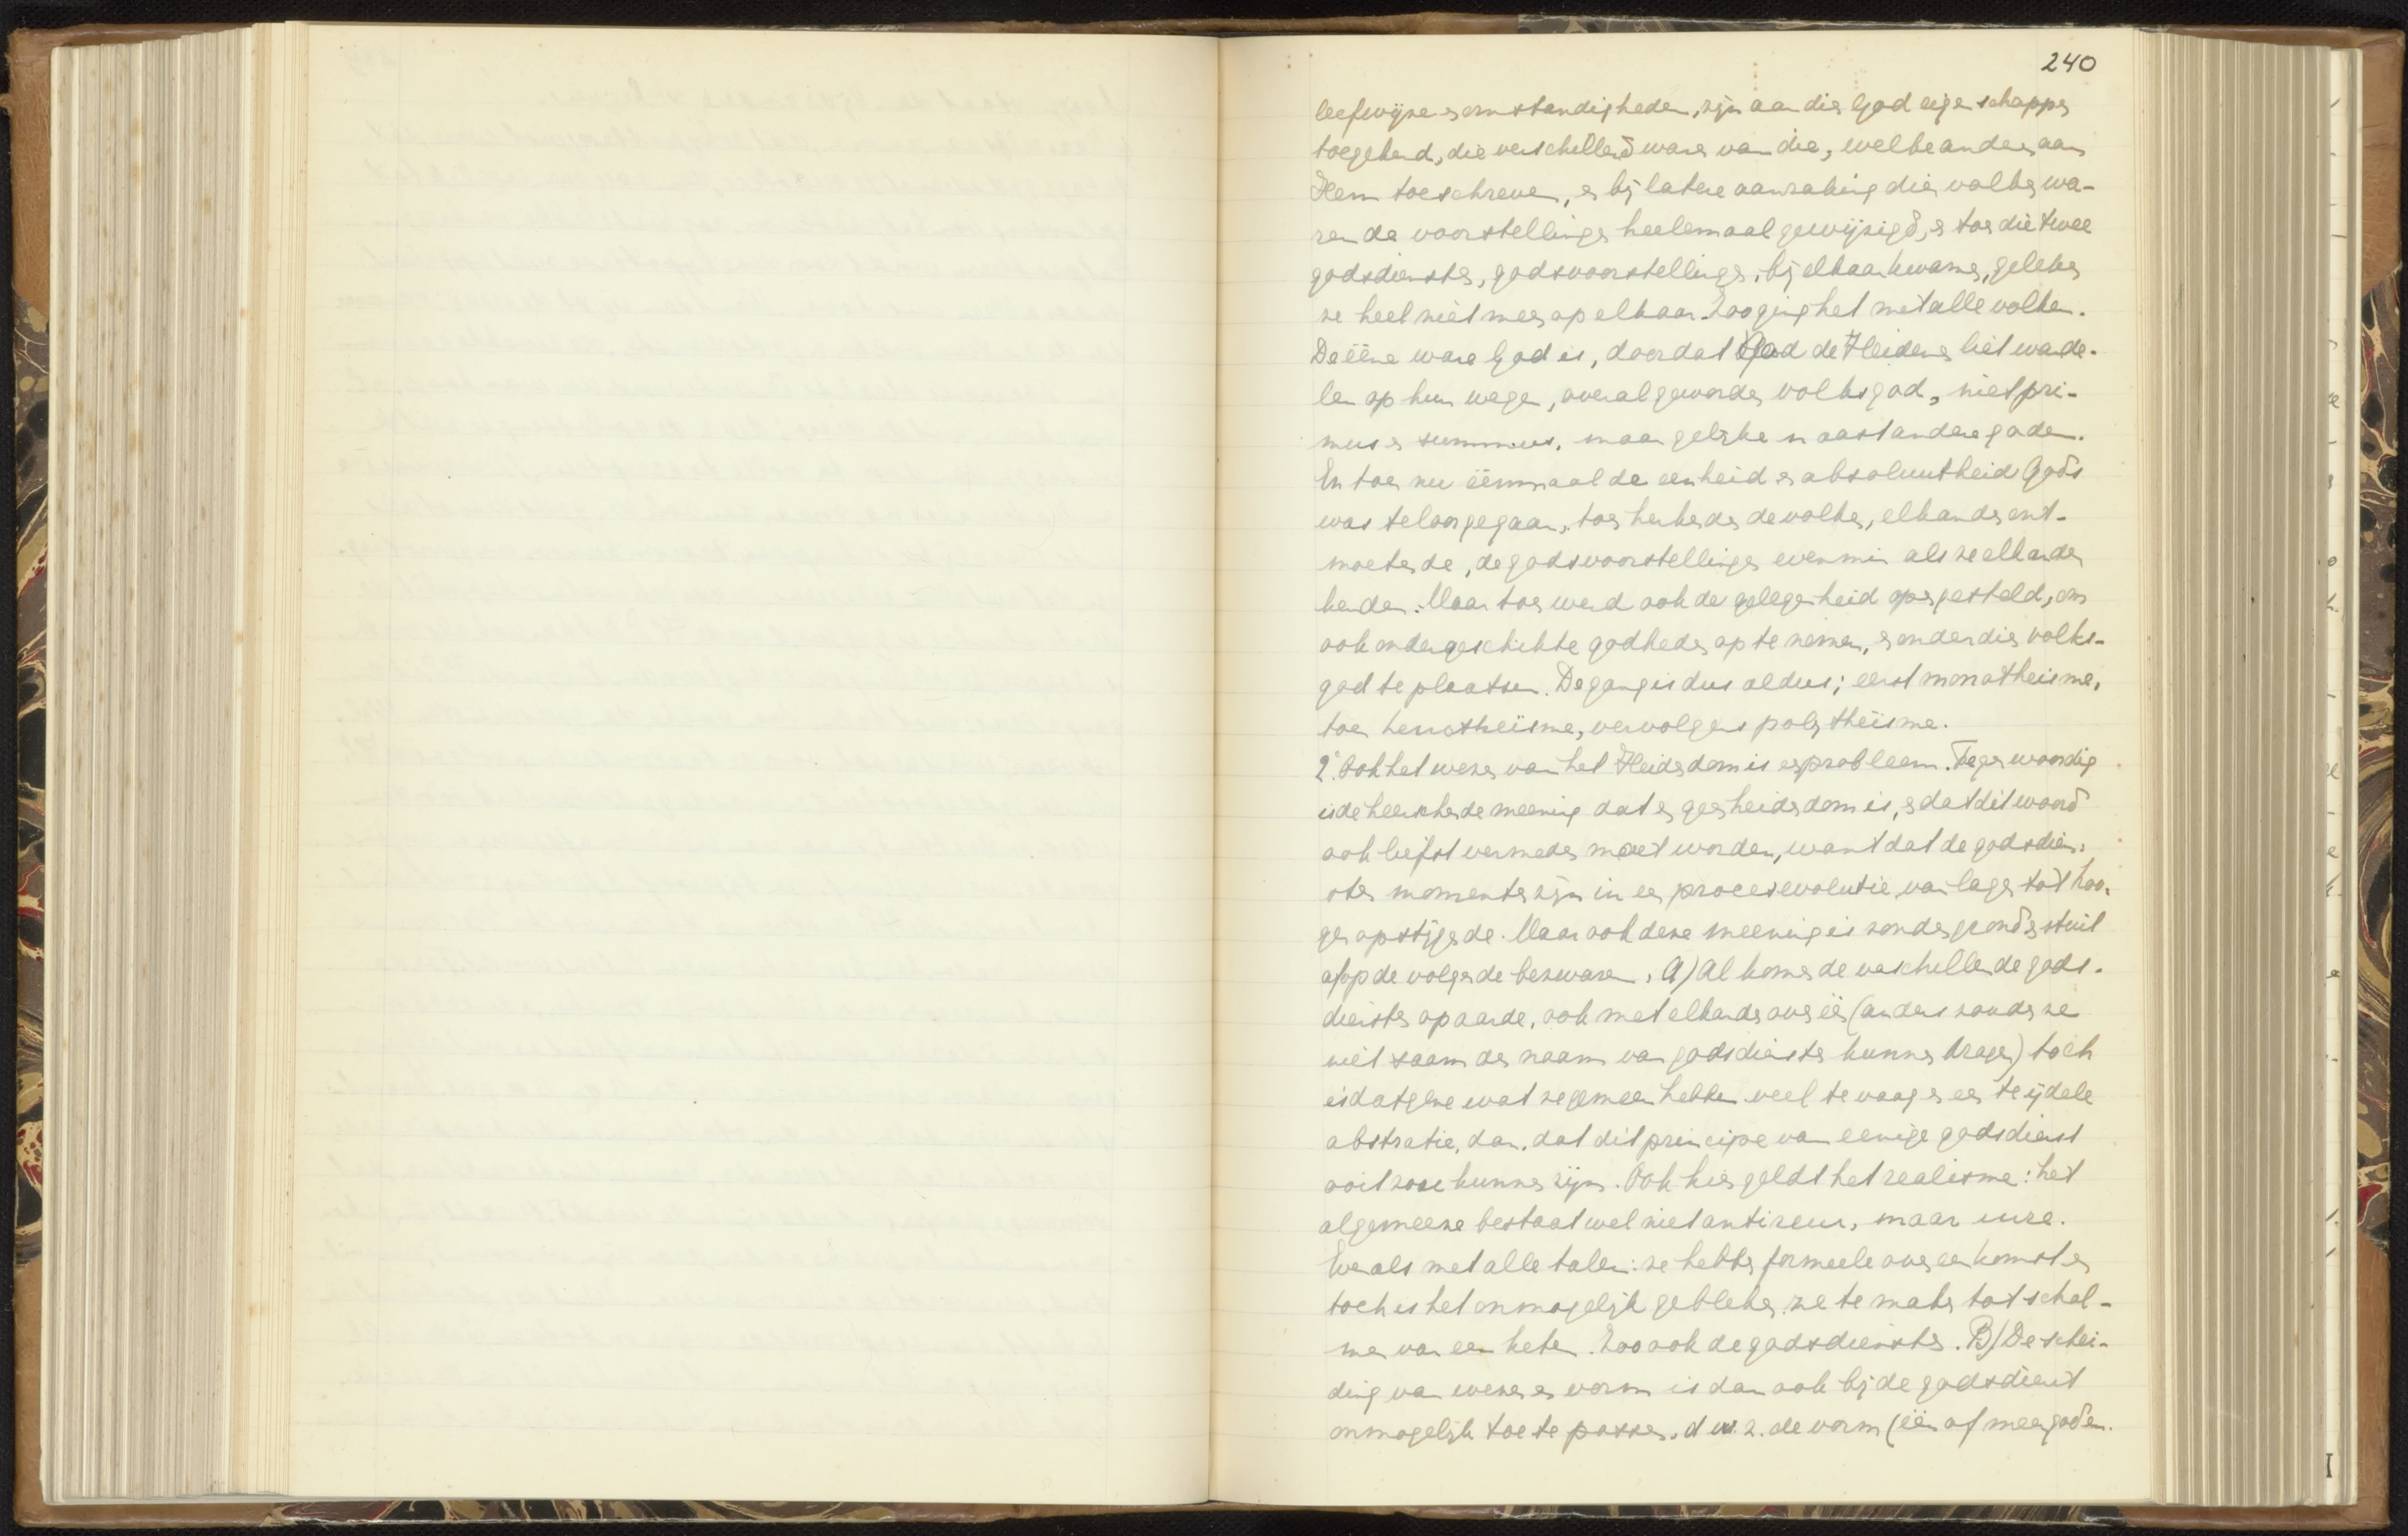 240
leefwijze en omstandigheden, zijn aan dien God eigenschappen
toegekend, die verschillend waren van die, welke anderen aan
Hem toeschreven, en bij latere aanraking dier volken wa-
ren de voorstellingen heelemaal gewijzigd, en toen die twee
godsdiensten, godsvoorstellingen, bij elkaar kwamen, geleken
ze heel niet meer op elkaar. Zoo ging het met alle volken.
De ééne ware God is, doordat God de Heidenen liet wande-
len op hun wegen, overal geworden volksgod, niet pri-
mus en summus, maar gelijke naast andere goden.
En toen nu éénmaal de eenheid en absoluutheid Gods
was teloorgegaan, toen herkenden de volken, elkander ont-
moetende, de godsvoorstellingen evenmin als ze elkander
kenden. Maar toen werd ook de gelegenheid opengesteld, om
ook ondergeschikte godheden op te nemen, en onder dien volks-
god te plaatsen. De gang is dus aldus; eerst monotheisme,
toen henotheïsme, vervolgens polytheïsme.
2° Ook het wezen van het Heidendom is een probleem. Tegenwoordig
is de heerschende meening dat er geen heidendom is, en dat dit woord
ook liefst vermeden moet worden, want dat de godsdien-
sten momenten zijn in een procesevolutie, van lager tot hoo-
ger opstijgende. Maar ook deze meening is zonder grond en stuit
af op de volgende bezwaren. A) Al komen de verschillende gods-
diensten op aarde, ook met elkander overéén (anders zouden ze
niet saam den naam van godsdiensten kunnen dragen) toch
is datgene wat ze gemeen hebben veel te vaag en een te ijdele
abstratie, dan, dat dit principe van eenige godsdienst
ooit zou kunnen zijn. Ook hier geldt het realisme: het
algemeene bestaat wel niet ante rem, maar in re.
Evenals met alle talen: ze hebben formeele overeenkomst en
toch is het onmogelijk gebleken, ze te maken tot schal-
men van een keten. Zoo ook de godsdiensten. B) De schei-
ding van wezen en vorm is dan ook bij de godsdienst
onmogelijk toe te passen, d.w.z. de vorm (één of meer goden.